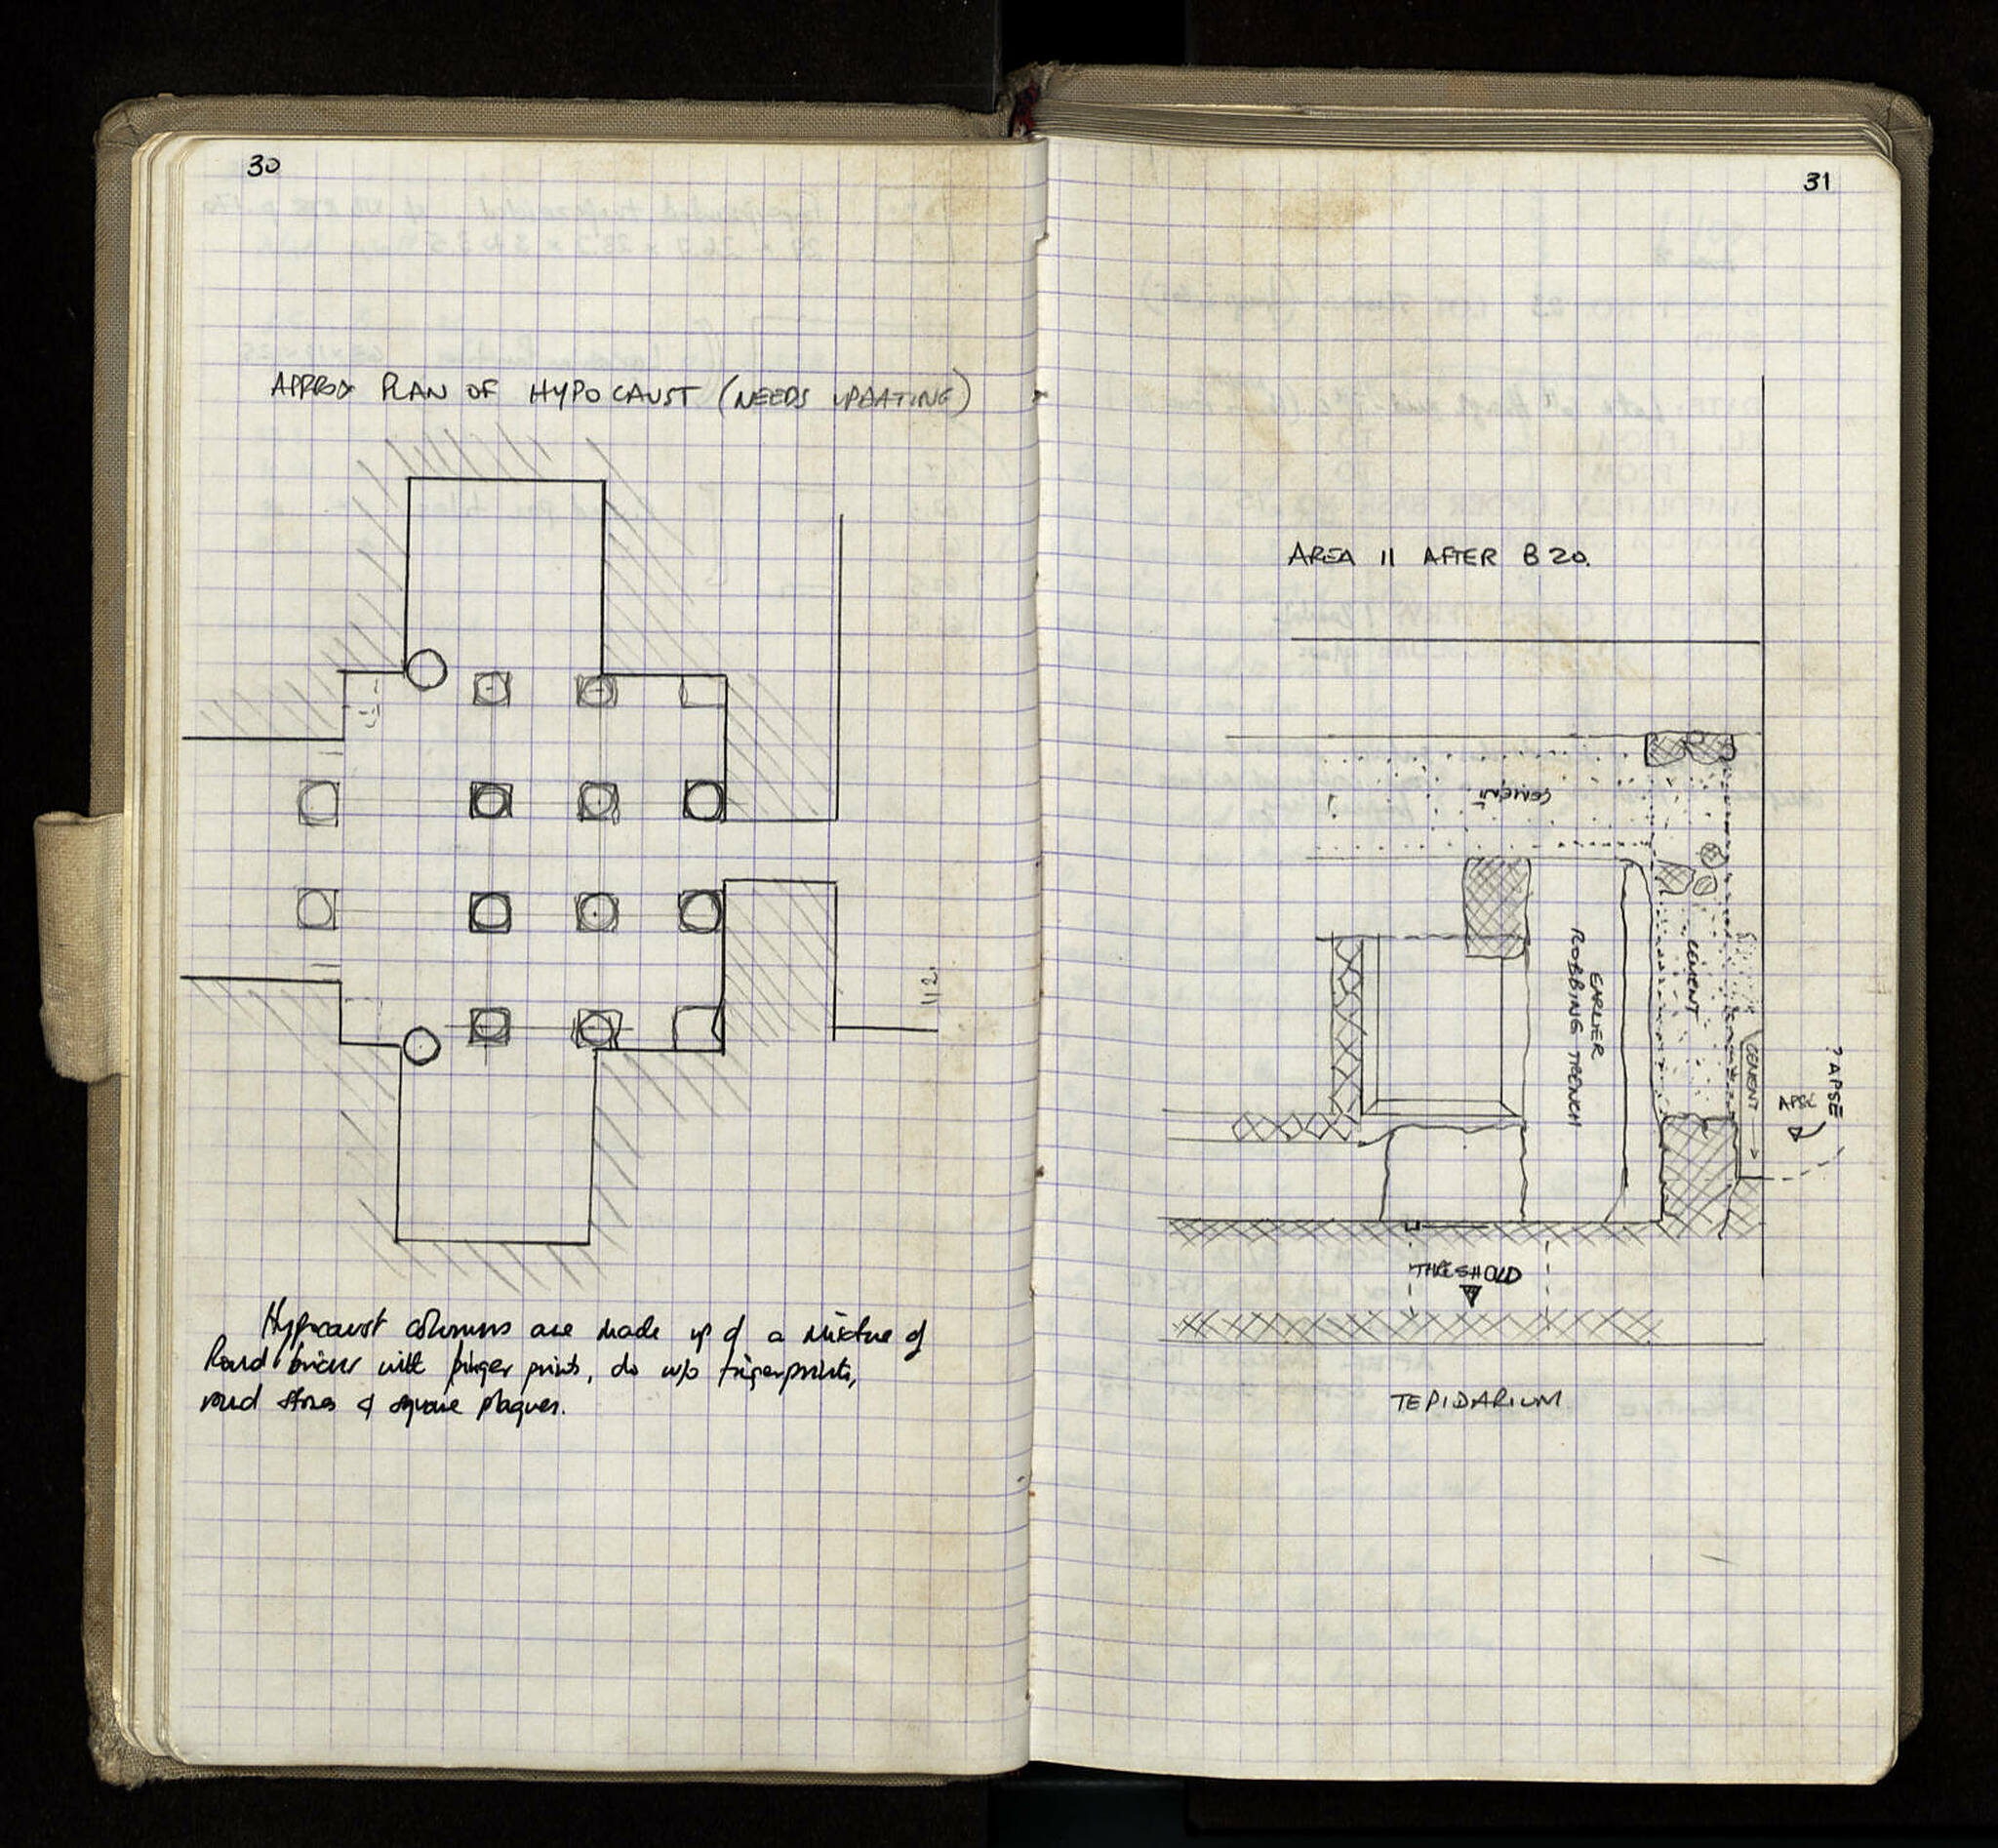 30
APPROX PLAN OF HYPOCAUST (NEEDS UPDATING)
112.
Hypocaust columns are made up of a mixture of
Round bricks with finger prints, do w/o fingerprints,
round stones & square plaques.
31
AREA 11 AFTER B20.
CEMENT
EARLIER
ROBBING TRENCH
CEMENT
CEMENT
APSE
? APSE
THRESHOLD
TEPIDARIUM